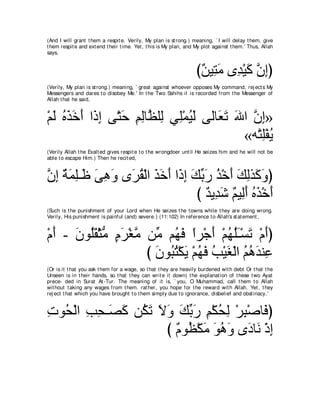 (And I will grant them a respite. Verily, My plan is strong.) meaning, ` I will delay them, give
them respite and extend their time. Yet, this is My plan, and My plot against them.' Thus, Allah
says,
﴿إِنَّ كَيْدِى مَتِينٌ﴾
(Verily, My plan is strong.) meaning, ` great against whoever opposes My command, rejects My
Messengers and dares to disobey Me.' In the Two Sahihs it is recorded from the Messenger of
Allah that he said,
«إِنَّ اللهَ تَعَالَى لَيُمْلِي لِلظَّالِمِ حَتَّى إِذَا أَخَذَهُ لَمْ
يُفْلِتْه»
(Verily Allah the Exalted gives respite to the wrongdoer until He seizes him and he will not be
able to escape Him.) Then he recited,
﴿وَكَذَلِكَ أَخْذُ رَبِّكَ إِذَا أَخَذَ الْقُرَى وَهِىَ ظَـلِمَةٌ إِنَّ
أَخْذَهُ أَلِيمٌ شَدِيدٌ ﴾
(Such is the punishment of your Lord when He seizes the towns while they are doing wrong.
Verily, His punishment is painful (and) severe.) (11:102) In reference to Allah's statement,
﴿أَمْ تَسْـَلُهُمْ أَجْراً فَهُم مِّن مَّغْرَمٍ مُّثْقَلُونَ - أَمْ
عِندَهُمُ الْغَيْبُ فَهُمْ يَكْتُبُونَ ﴾
(Or is it that you ask them for a wage, so that they are heavily burdened with debt Or that the
Unseen is in their hands, so that they can write it down) the explanation of these two Ayat
prece- ded in Surat At-Tur. The meaning of it is, ` you, O Muhammad, call them to Allah
without taking any wages from them. rather, you hope for the reward with Allah. Yet, they
reject that which you have brought to them simply due to ignorance, disbelief and obstinacy.'
﴿فَاصْبِرْ لِحُكْمِ رَبِّكَ وَلاَ تَكُن كَصَـحِبِ الْحُوتِ
إِذْ نَادَى وَهُوَ مَكْظُومٌ ﴾